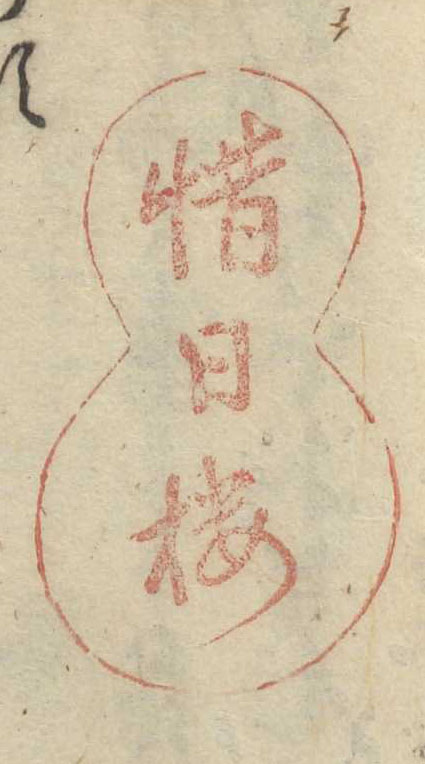 惜日楼